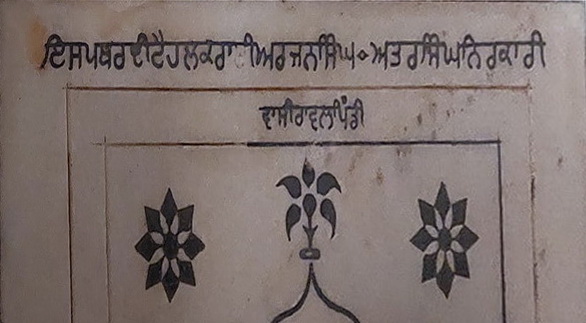 ਇਸਪਥਰਦੀਟੈਹਲਕਰਾਈਅਰਜਨਸਿੰਘ੦ਅਤਰਸਿੰਘਨਿਰਕਾਰੀ
ਵਾਸੀਰਾਵਲਪਿੰਡੀ